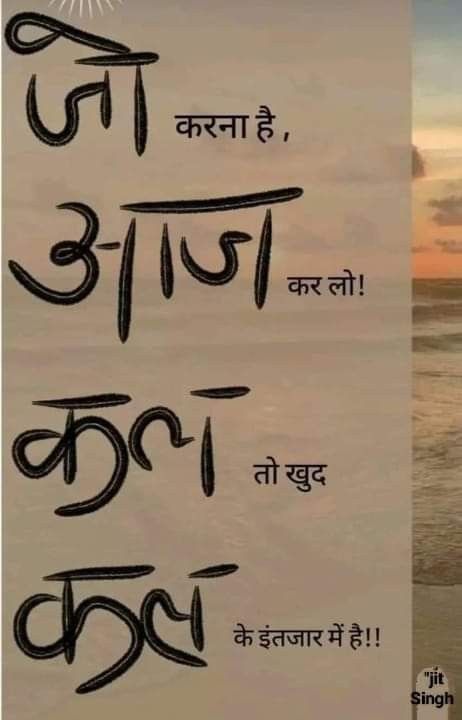 जो करना है,
आज कर लो!
कल तो खुद
कल के इंतजार में है!!
"jit
Singh